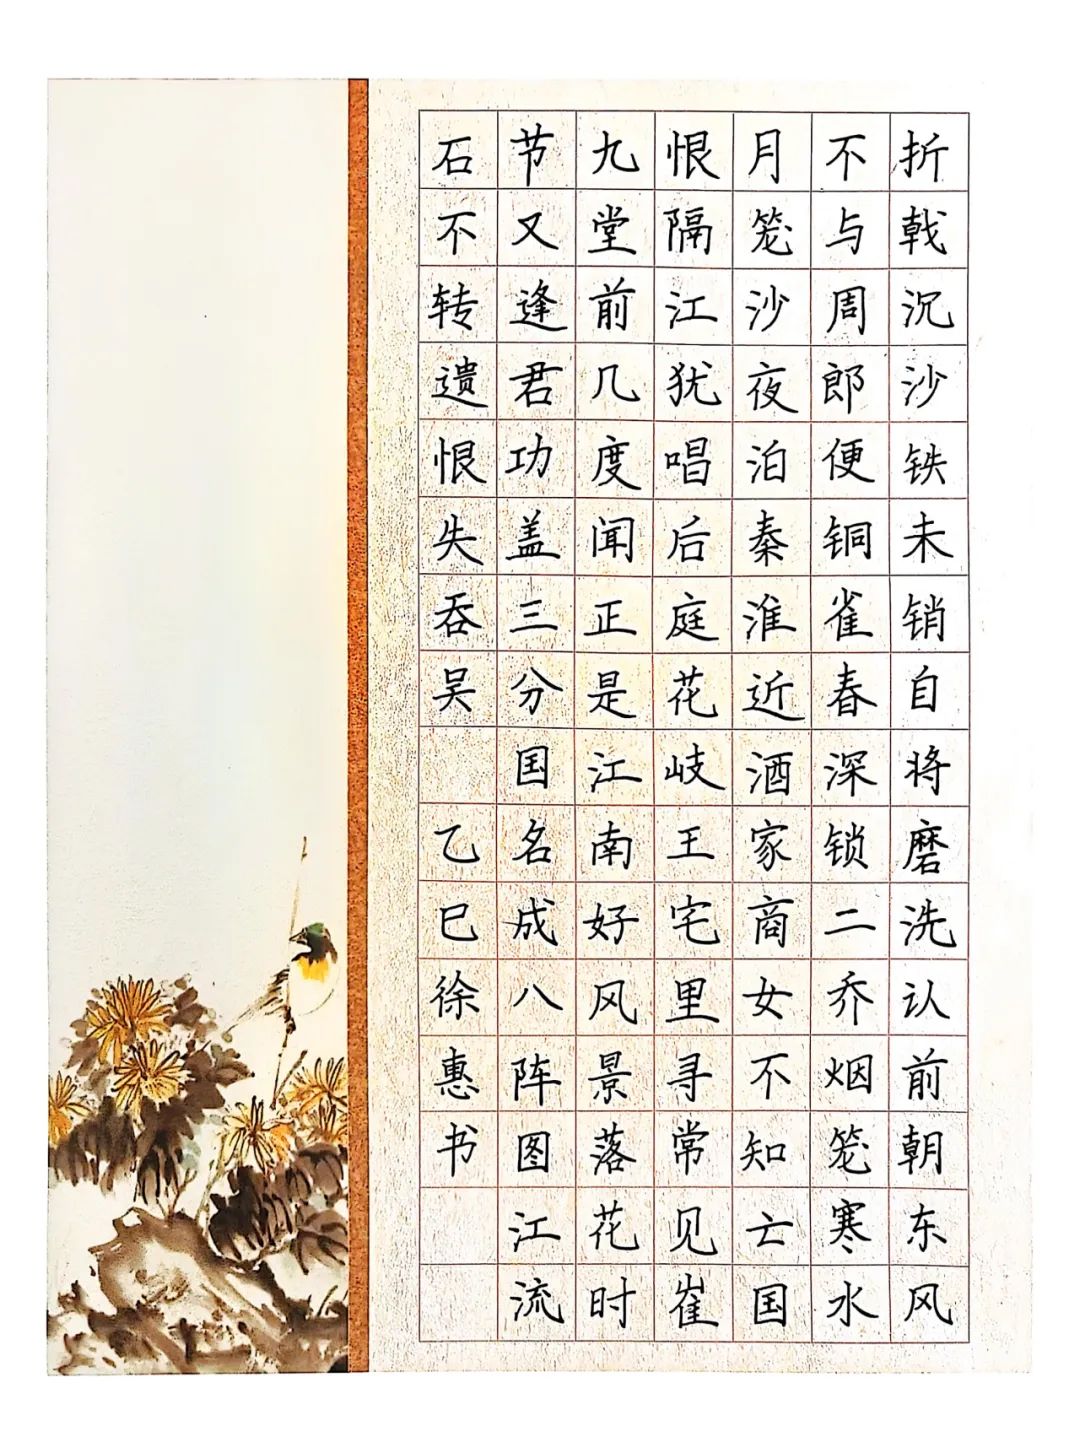 折戟沉沙铁未销自将磨洗认前朝东风
不与周郎便铜雀春深锁二乔烟笼寒水
月笼沙夜泊秦淮近酒家商女不知亡国
恨隔江犹唱后庭花岐王宅里寻常见崔
九堂前几度闻正是江南好风景落花时
节又逢君功盖三分国名成八阵图江流
石不转遗恨失吞吴 乙巳徐惠书